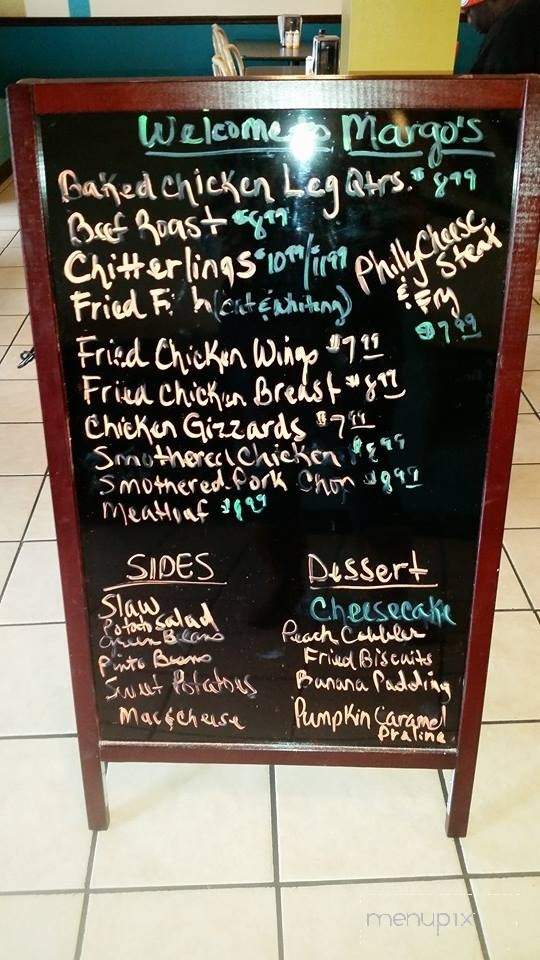 Welcome to Margo's
Baked Chicken Leg Qtrs. $8.99
Beef Roast $8.99
Chitterlings $10.99/11.99
Philly Cheese
Steak
& Fry
$7.99
Fried Fi h (Cat & Whiting)
Fried Chicken Wings $7.99
Fried Chicken Breast $8.99
Chicken Gizzards $7.99
Smothered Chicken $8.99
Smothered Pork Chop $8.99
Meatloaf $8.99
SIDES
Slaw
Potato Salad
Green Beans
Pinto Beans
Sweet Potatoes
Mac & Cheese
Dessert
Cheesecake
Peach Cobbler
Fried Biscuits
Banana Pudding
Pumpkin Caramel
Praline
menupix